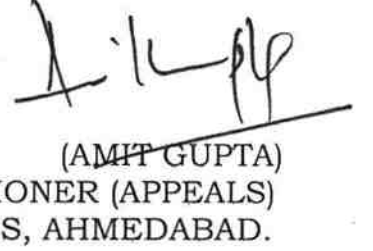 (AMIT GUPTA)
IONER (APPEALS)
S, AHMEDABAD.